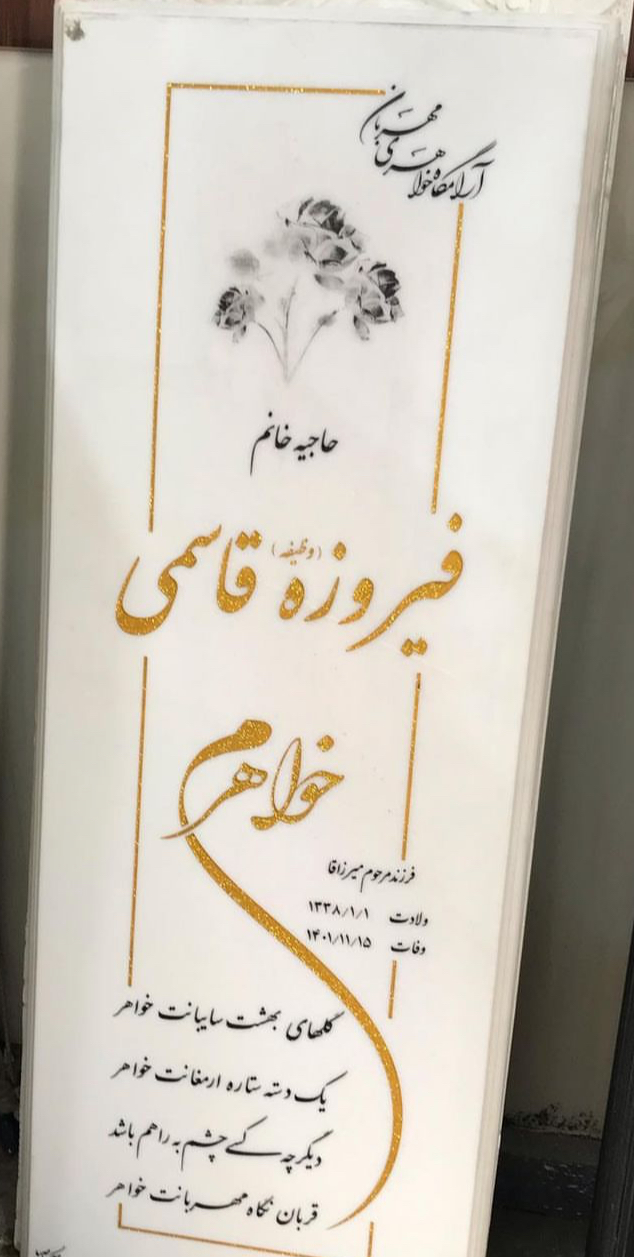 آرامگاه خواهری مهربان
حاجیه خانم
(وظیفه)
فیروزه قاسمی
خواهرم
فرزند مرحوم میرزاقا
ولادت ۱۳۳۸/۱/۱
وفات ۱۴۰۱/۱۱/۱۵
گلهای بهشت سایبانت خواهر
یک دسته ستاره ارمغانت خواهر
دیگر چه کسی چشم به راهم باشد
قربان نگاه مهربانت خواهر